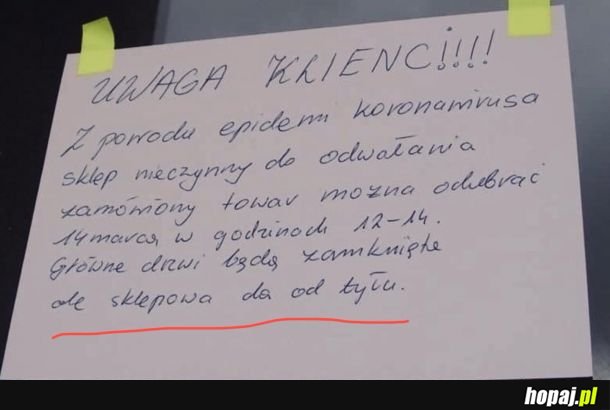 UWAGA KLIENCI!!!!
Z powodu epidemi koronawirusa
sklep nieczynny do odwołania
zamówiony towar można odebrać
14 marca w godzinach 12-14.
Główne drzwi będą zamknięte
ale sklepowa da od tyłu.
hopaj.pl